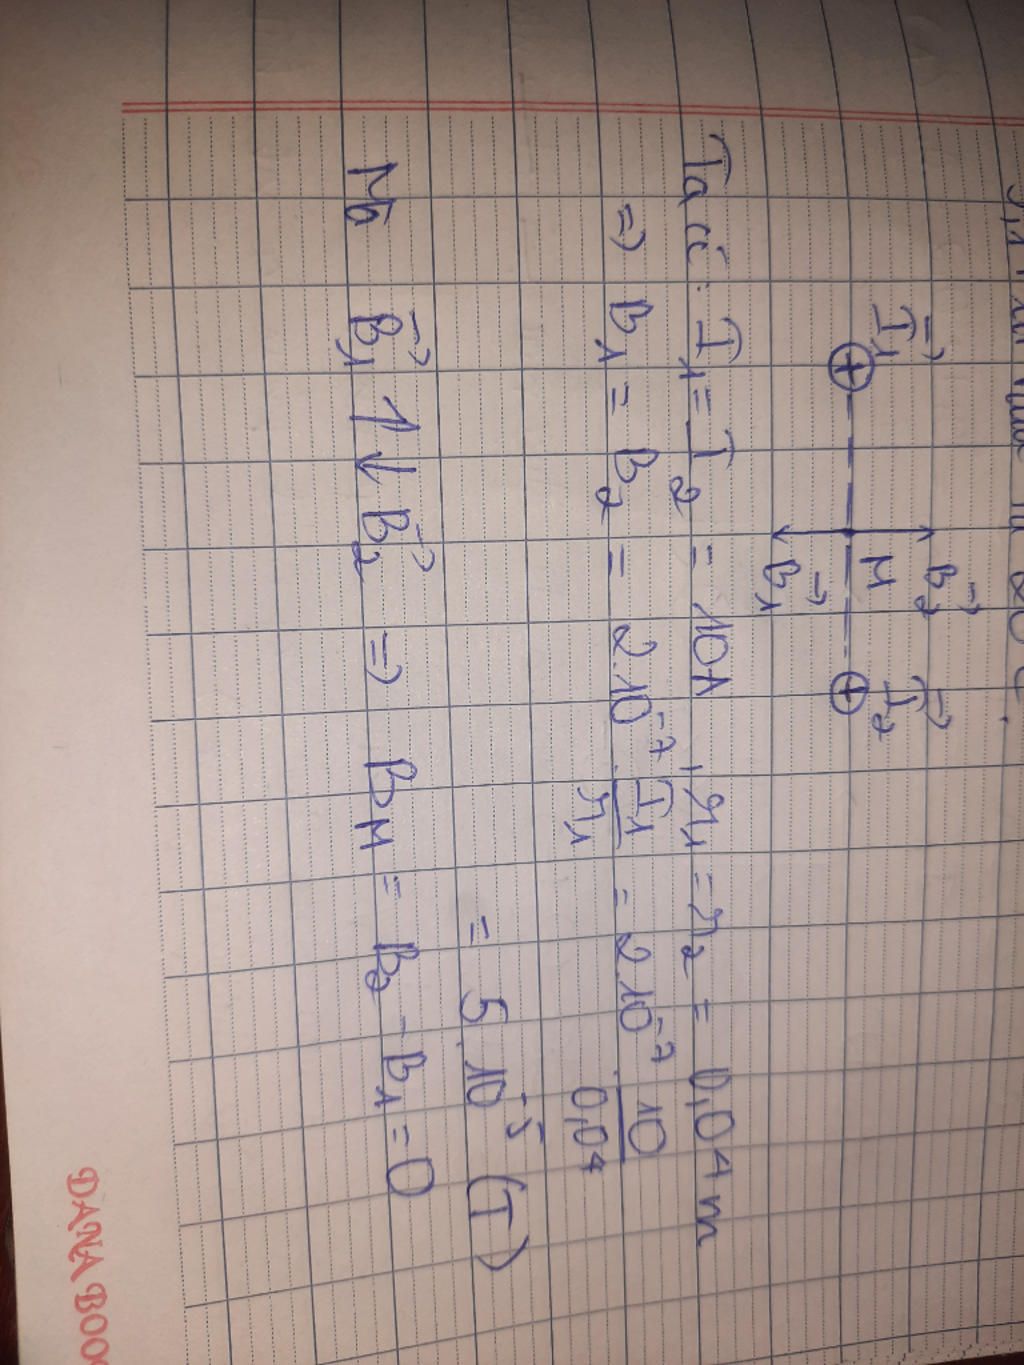 I₁→ B₂→ I₂→
⊕ M ⊕
B₁→
Ta có: I₁ = I₂ = 10A, r₁ = r₂ = 0,04m
=> B₁ = B₂ = 2.10⁻⁷. I₁/r₁ = 2.10⁻⁷. 10/0,04
= 5.10⁻⁵ (T)
Mà B₁→ ↑↓ B₂→ => B_M = B₂ - B₁ = 0